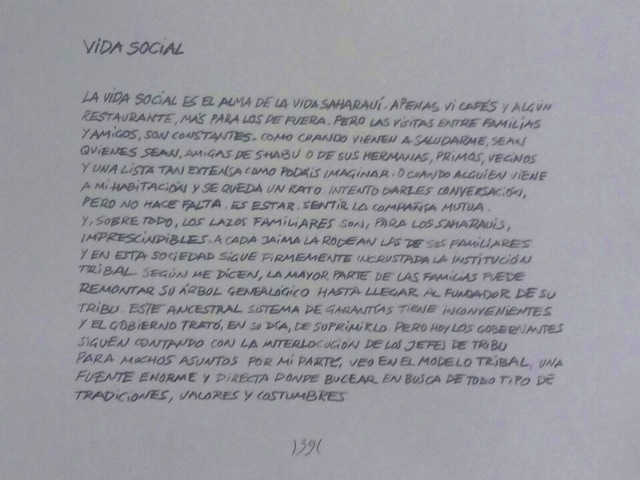 VIDA SOCIAL
LA VIDA SOCIAL ES EL ALMA DE LA VIDA SAHARAUÍ. APENAS VI CAFÉS Y ALGÚN
RESTAURANTE, MÁS PARA LOS DE FUERA. PERO LAS VISITAS ENTRE FAMILIAS
Y AMIGOS, SON CONSTANTES. COMO CUANDO VIENEN A SALUDARME, SEAN
QUIENES SEAN, AMIGAS DE SHABU O DE SUS HERMANAS, PRIMOS, VECINOS
Y UNA LISTA TAN EXTENSA COMO PODÁIS IMAGINAR. O CUANDO ALGUIEN VIENE
A MI HABITACIÓN Y SE QUEDA UN RATO. INTENTO DARLES CONVERSACIÓN,
PERO NO HACE FALTA. ES ESTAR. SENTIR LA COMPAÑÍA MUTUA.
Y, SOBRE TODO, LOS LAZOS FAMILIARES SON, PARA LOS SAHARAUIS,
IMPRESCINDIBLES. A CADA JAIMA LA RODEAN LAS DE SUS FAMILIARES
Y EN ESTA SOCIEDAD SIGUE FIRMEMENTE INCRUSTADA LA INSTITUCIÓN
TRIBAL. SEGÚN ME DICEN, LA MAYOR PARTE DE LAS FAMILIAS PUEDE
REMONTAR SU ÁRBOL GENEALÓGICO HASTA LLEGAR AL FUNDADOR DE SU
TRIBU. ESTE ANCESTRAL SISTEMA DE GARANTÍAS TIENE INCONVENIENTES
Y EL GOBIERNO TRATÓ, EN SU DÍA, DE SUPRIMIRLO. PERO HOY LOS GOBERNANTES
SIGUEN CONTANDO CON LA INTERLOCUCIÓN DE LOS JEFES DE TRIBU
PARA MUCHOS ASUNTOS. POR MI PARTE, VEO EN EL MODELO TRIBAL, UNA
FUENTE ENORME Y DIRECTA DONDE BUCEAR EN BUSCA DE TODO TIPO DE
TRADICIONES, VALORES Y COSTUMBRES
)39(